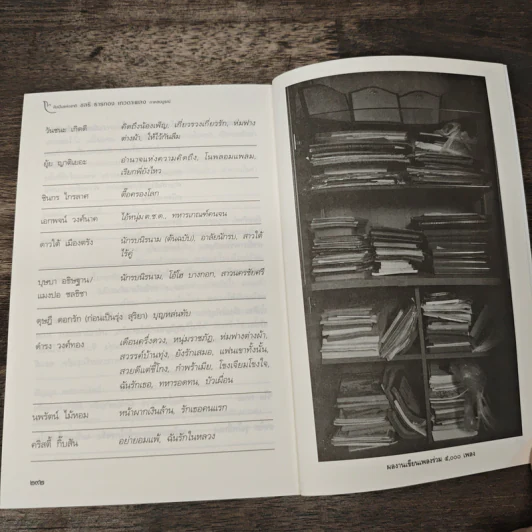 วันชนะ เกิดดี คิดถึงน้องเพ็ญ, เกี่ยวรวงเกี่ยวรัก, ห่มฟาง
ต่างผ้า, ให้ไวก้นลืม
อุ้ย ญาติเยอะ อำนาจแห่งความคิดถึง, ไนพลอมแพลม,
เรียกพี่ยังไหว
ชินกร ไกรลาศ ตื๊อครองโลก
เอกพจน์ วงศ์นาค ไอ้หนุ่ม ต.ช.ด., ทหารเกณฑ์คนจน
ดาวใต้ เมืองตรัง นักรบนิรนาม (ต้นฉบับ), อาลัยนักรบ, สาวใต้
ไร้คู่
บุษบา อธิษฐาน/ นักรบนิรนาม, โอ้โฮ บางกอก, สาวนครชัยศรี
แมงปอ ชลธิชา
ดุษฎี ดอกรัก (ก่อนเป็นรุ่ง สุริยา) บุญหล่นทับ
ดำรง วงศ์ทอง เดือนครึ่งดวง, หนุ่มราชภัฏ, ห่มฟางต่างผ้า,
สวรรค์บ้านทุ่ง, ยังรักเสมอ, แฟนเขาทั้งนั้น,
สวยดีแต่ขี้โกง, กำพร้าเมีย, โขงเจียมโขงใจ,
ฉันรักเธอ, ทหารอดทน, บัวเผื่อน
นพรัตน์ ไม้หอม หน้าผากเงินล้าน, รักเธอคนแรก
คริสตี้ กิ๊บสัน อย่ายอมแพ้, ฉันรักในหลวง
๒๙๒
ผลงานเขียนเพลงร่วม ๕,๐๐๐ เพลง